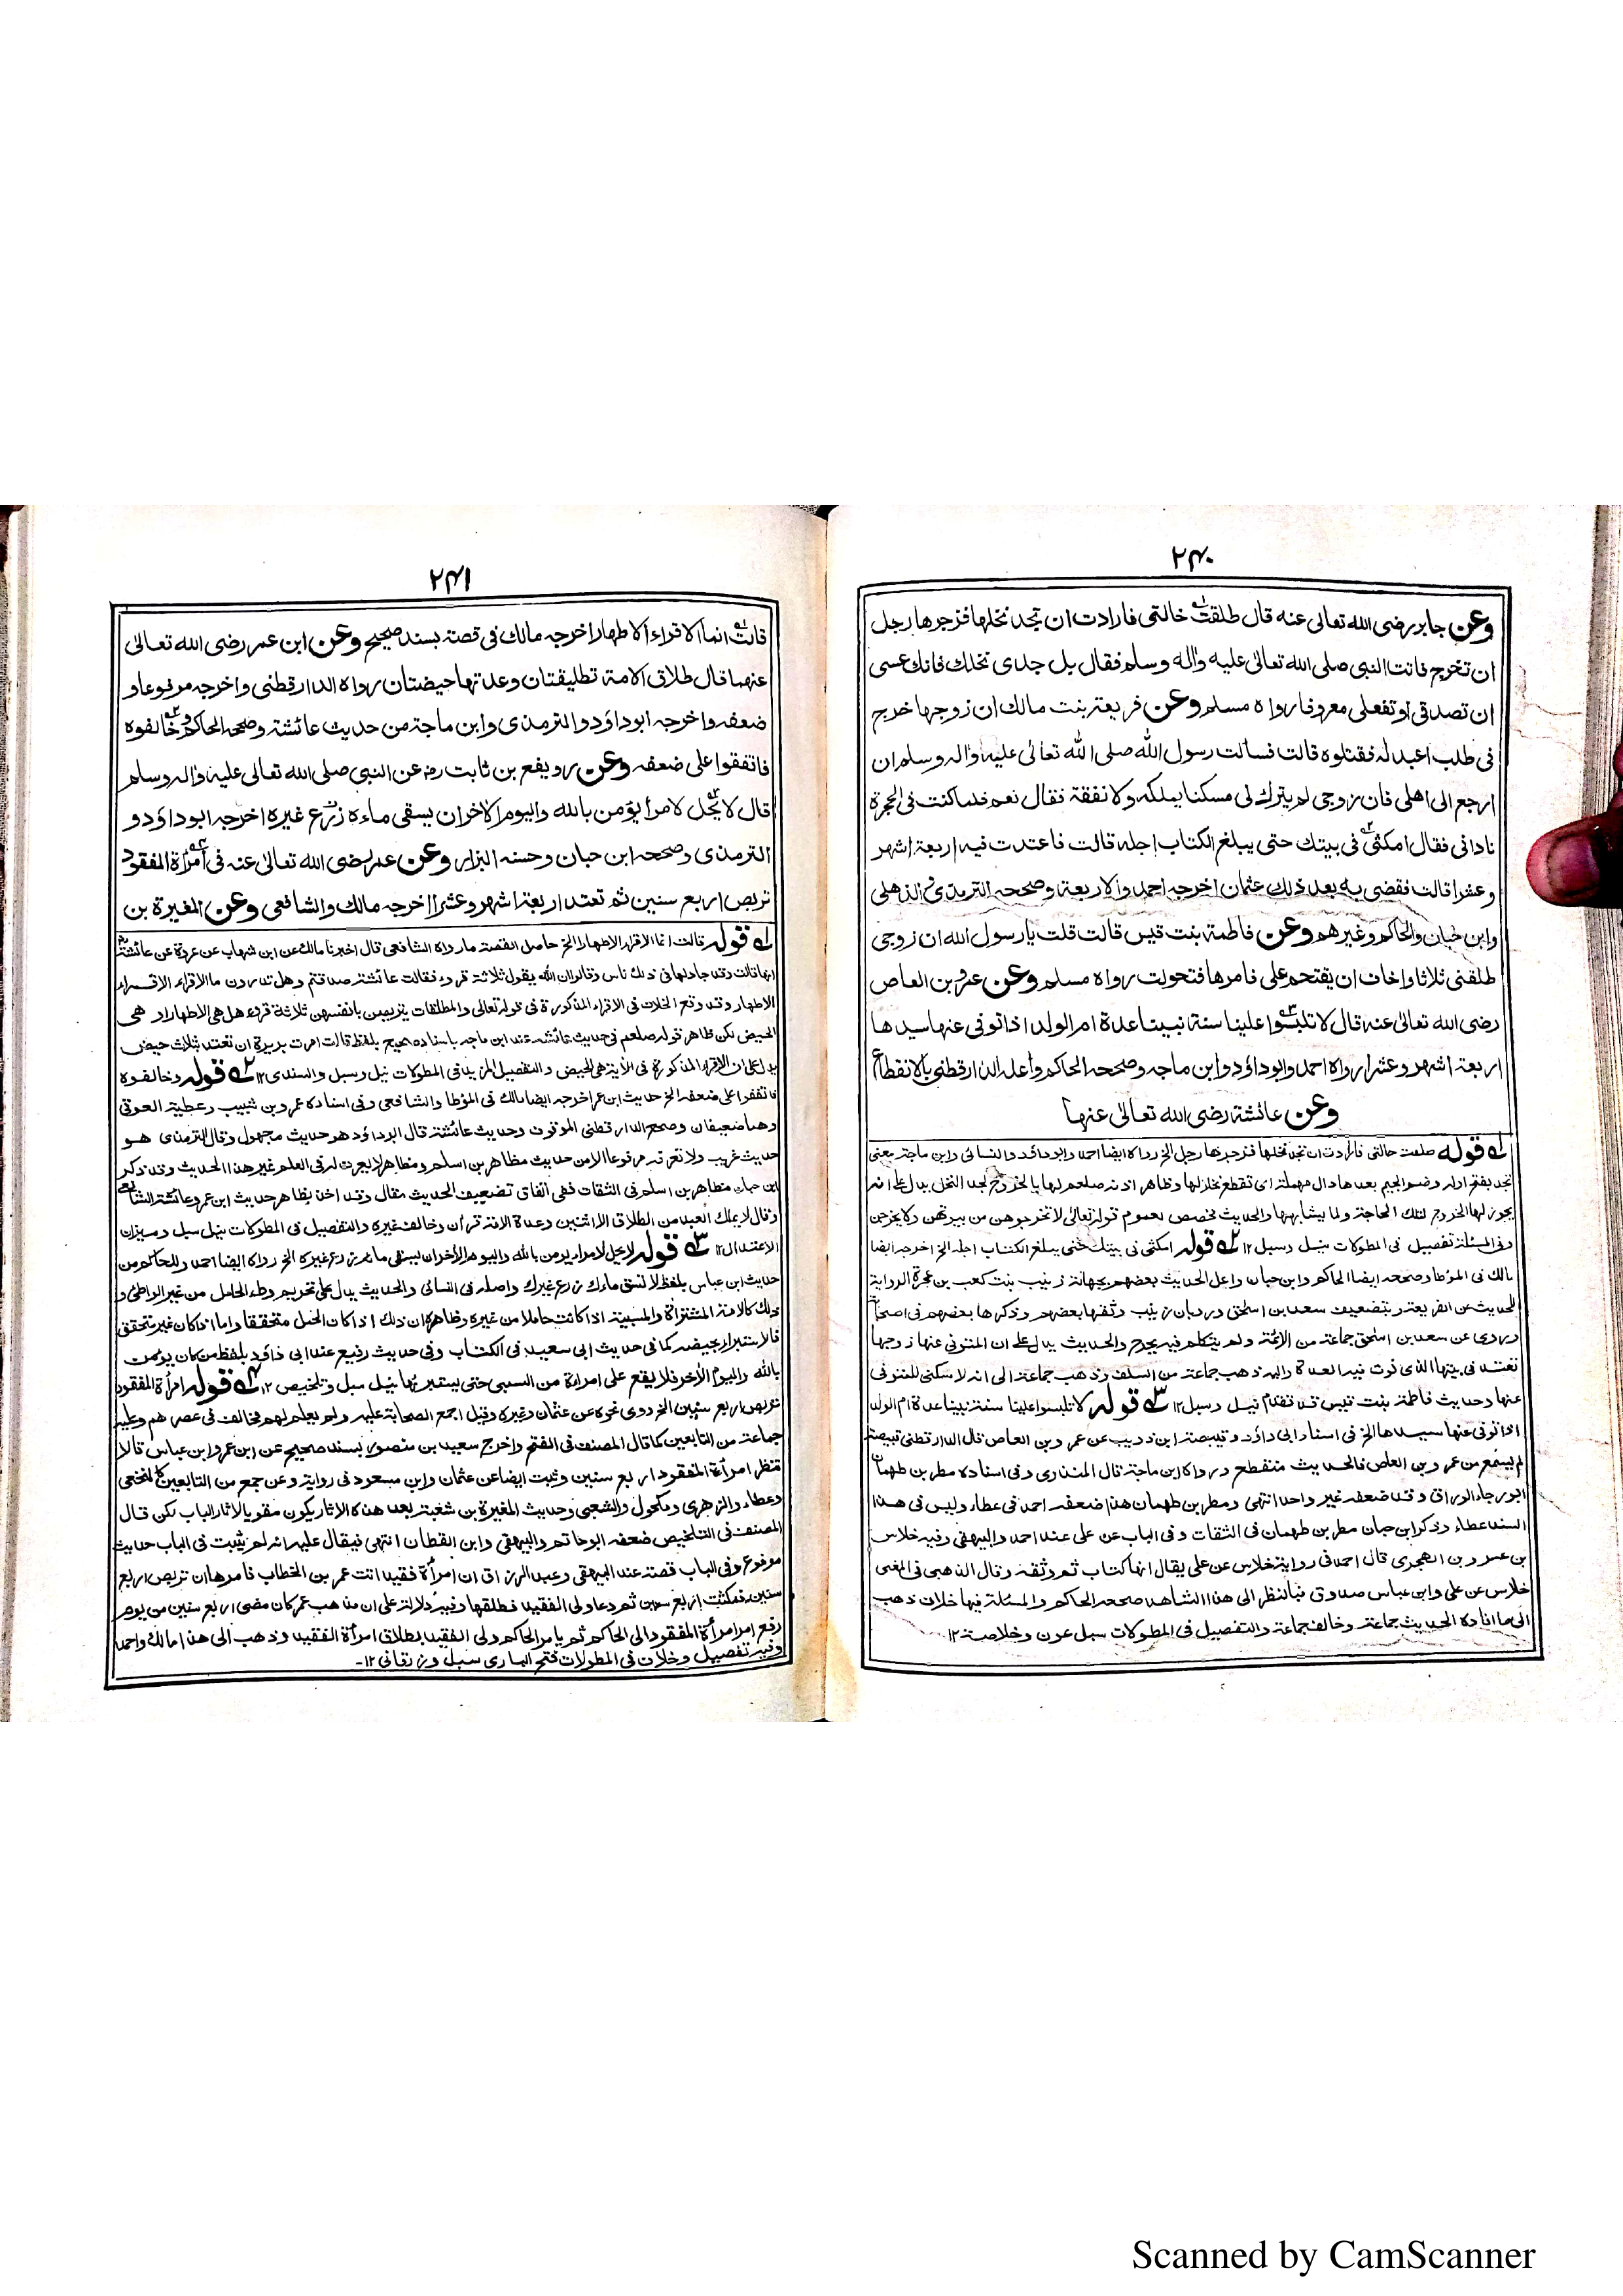 ٢٤٠
وعن جابر رضى الله تعالى عنه قال طلقت خالتى فارادت ان تجد نخلها فزجرها رجل
ان تخرج فاتت النبى صلى الله تعالى عليه واله وسلم فقال بل جدى نخلك فانك عسى
ان تصدقى او تفعلى معروفا رواه مسلم وعن فريعة بنت مالك ان زوجها خرج
فى طلب اعبد له فقتلوه قالت فسالت رسول الله صلى الله تعالى عليه واله وسلم ان
ارجع الى اهلى فان زوجى لم يترك لى مسكنا يملكه ولا نفقة فقال نعم فلما كنت فى الحجرة
نادانى فقال امكثى فى بيتك حتى يبلغ الكتاب اجله قالت فاعتدت فيه اربعة اشهر
وعشرا قالت فقضى به بعد ذلك عثمان اخرجه احمد والاربعة وصححه الترمذى والذهلى
وابن حبان والحاكم وغيرهم وعن فاطمة بنت قيس قالت قلت يا رسول الله ان زوجى
طلقنى ثلاثا واخاف ان يقتحم على فامرها فتحولت رواه مسلم وعن عمرو بن العاص
رضى الله تعالى عنه قال لا تلبسوا علينا سنة نبينا عدة ام الولد اذا توفى عنها سيدها
اربعة اشهر وعشرا رواه احمد وابوداؤد وابن ماجه وصححه الحاكم واعله الدارقطنى بالانقطاع
وعن عائشة رضى الله تعالى عنها
له قوله طلقت خالتى فارادت ان تجد نخلها فزجرها رجل الخ رواه ايضا احمد وابوداؤد والنسائى وابن ماجة يعنى
تجد بفتح اوله وضم الجيم بعدها دال مهملة اى تقطع نخلا لها وظاهر اذنه صلعم لها بالخروج لجد النخل يدل على انه
يجوز لها الخروج لتلك الحاجة ولما يشابهها والحديث مخصص لعموم قوله تعالى لا تخرجوهن من بيوتهن ولا يخرجن
وفى المسئلة تفصيل فى المطولات نيل وسبل ١٢ قوله امكثى فى بيتك حتى يبلغ الكتاب اجله الخ اخرجه ايضا
مالك فى المؤطا وصححه ايضا الحاكم وابن حبان واعل الحديث بعضهم بجهالة زينب بنت كعب بن عجرة الرواية
للحديث عن الفريعة وبتضعيف سعد بن اسحق ورد بان زينب وثقها بعضهم وذكرها بعضهم فى
وروى عن سعد بن اسحق جماعة من الائمة ولم يتكلم فيه بجرح والحديث يدل على ان المتوفى عنها زوجها
تعتد فى بيتها الذى فيه العدة واليه ذهب جماعة من السلف وذهب جماعة الى انه لا سكنى للمتوفى
عنها وحديث فاطمة بنت قيس قد تقدم نيل وسبل ١٢ قوله لا تلبسوا علينا سنة نبينا عدة ام الولد
اذا توفى عنها سيدها الخ فى اسناد ابى داؤد وقبيصة ابن ذويب عن عمرو بن العاص قال الدارقطنى قبيصة
لم يسمع من عمرو بن العاص فالحديث منقطع ورواه ابن ماجة قال المنذرى وفى اسناده مطر بن طهمان
ابو رجاء الوراق وقد ضعفه غير واحد انتهى ومطر بن طهمان هذا ضعفه احمد فى عطاء وليس فى هذا
السند عطاء وذكر ابن حبان مطر بن طهمان فى الثقات وفى الباب عن على عند احمد والبيهقى وفيه خلاس
بن عمرو بن الهجرى قال احمد فى رواية خلاس عن على يقال انها كتاب ثم وثقه وقال الذهبى فى المغنى
خلاس عن على وابن عباس صدوق فبالنظر الى هذا الشاهد صححه الحاكم والمسئلة فيها خلاف ذهب
الى ما افاده الحديث جماعة وخالف جماعة والتفصيل فى المطولات سبل عون وخلاصة ١٢
٢٤١
قالت انما الاقراء الاطهار اخرجه مالك فى قصة بسند صحيح وعن ابن عمر رضى الله تعالى
عنهما قال طلاق الامة تطليقتان وعدتها حيضتان رواه الدارقطنى واخرجه مرفوعا و
ضعفه واخرجه ابوداؤد والترمذى وابن ماجة من حديث عائشة وصححه الحاكم وخالفوه
فاتفقوا على ضعفه وعن رويفع بن ثابت رض عن النبى صلى الله تعالى عليه واله وسلم
قال لا يحل لامرأ يؤمن بالله واليوم الاخر ان يسقى ماءه زرع غيره اخرجه ابوداؤد و
الترمذى وصححه ابن حبان وحسنه البزار وعن عمر رضى الله تعالى عنه فى امرأة المفقود
تربص اربع سنين ثم تعتد اربعة اشهر وعشرا اخرجه مالك والشافعى وعن المغيرة بن
له قوله قالت انما الاقراء الاطهار الخ حاصل القصة ما رواه الشافعى قال اخبرنا مالك عن ابن شهاب عن عروة عن عائشة
انها قالت وقد جادلها فى ذلك ناس وقالوا ان الله يقول ثلاثة قروء فقالت عائشة صدقتم وهل تدرون ما الاقراء الاقراء
الاطهار وقد وقع الخلاف فى الاقراء المذكورة فى قوله تعالى والمطلقات يتربصن بانفسهن ثلاثة قروء هل هى الاطهار او هى
الحيض لكن ظاهر قوله صلعم فى حديث عائشة عند ابن ماجه باسناد صحيح بلفظ قالت امرت بريرة ان تعتد بثلاث حيض
يدل على ان الاقراء المذكورة فى الاية هى الحيض والتفصيل المزيد فى المطولات نيل وسبل والسندى ١٢ قوله وخالفوه
فاتفقوا على ضعفه الخ حديث ابن عمر اخرجه ايضا مالك فى المؤطا والشافعى وفى اسناده عمرو بن شبيب وعطية العوفى
وهما ضعيفان وصحح الدارقطنى الموقوف وحديث عائشة قال ابوداؤد هو حديث مجهول وقال الترمذى هو
حديث غريب ولا نعرفه مرفوعا الا من حديث مظاهر بن اسلم ومظاهر لا يعرف له فى العلم غير هذا الحديث وقد ذكر
ابن حبان مظاهر بن اسلم فى الثقات ففى اتفاق تضعيف الحديث مقال وقد اخذ بظاهر حديث ابن عمر وعائشة الشافعى
وقال لا يملك العبد من الطلاق الا اثنتين وعدة الامة قرآن وخالفه غيره والتفصيل فى المطولات نيل سبل وميزان
الاعتدال ١٢ قوله لا يحل لامرأ يؤمن بالله واليوم الاخر ان يسقى ماءه زرع غيره الخ رواه ايضا احمد وللحاكم من
حديث ابن عباس بلفظ لا تسق ماءك زرع غيرك واصله فى النسائى والحديث يدل على تحريم وطء الحامل من غير الواطى و
ذلك كالامة المشتراة والمسبية اذا كانت حاملا من غيره وظاهره ان ذلك اذا كان الحبل متحققا واما اذا كان غير متحقق
فالاستبراء بحيضة كما فى حديث ابى سعيد فى الكتاب وفى حديث رفيع عند ابى داؤد بلفظ من كان يؤمن
بالله واليوم الاخر فلا يقع على امراة من السبى حتى يستبرئها نيل سبل وتلخيص ١٢ قوله امرأة المفقود
تربص اربع سنين الخ روى نحوه عن عثمان وغيره وقيل اجمع الصحابة عليه ولم يعلم لهم مخالف فى عصرهم وعليه
جماعة من التابعين كما قال المصنف فى الفتح واخرج سعيد بن منصور بسند صحيح عن ابن عمر وابن عباس قالا
تنظر امرأة المفقود اربع سنين وثبت ايضا عن عثمان وابن مسعود فى رواية وعن جمع من التابعين كالنخعى
وعطاء والزهرى ومكحول والشعبى وحديث المغيرة بن شعبة بعد هذه الاثار يكون مقويا لاثار الباب لكن قال
المصنف فى التلخيص ضعفه ابو حاتم والبيهقى وابن القطان انتهى فيقال عليه انه لم يثبت فى الباب حديث
مرفوع وفى الباب قصة عند البيهقى وعبد الرزاق ان امرأة فقيد اتت عمر بن الخطاب فامرها ان تربص اربع
سنين فمكثت اربع سنين ثم دعا ولى الفقيد فطلقها وفيه دلالة على ان مذهب عمر كان مضى اربع سنين من يوم
رفع امر امرأة المفقود الى الحاكم ثم يامر الحاكم ولى الفقيد بطلاق امرأة الفقيد وذهب الى هذا مالك واحمد
وفيه تفصيل وخلاف فى المطولات فتح البارى سبل وزرقانى ١٢-
Scanned by CamScanner